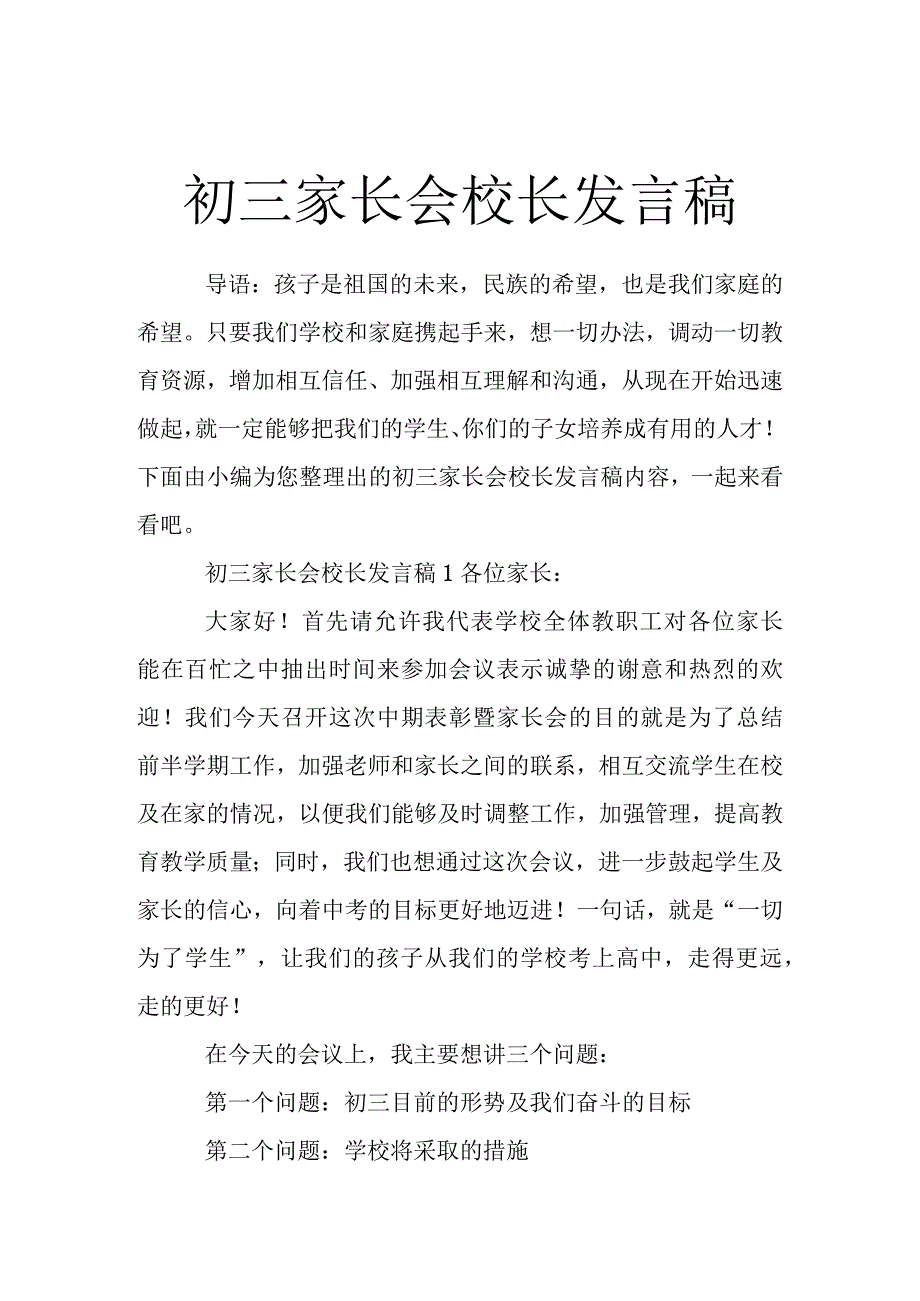 初三家长会校长发言稿
导语：孩子是祖国的未来，民族的希望，也是我们家庭的
希望。只要我们学校和家庭携起手来，想一切办法，调动一切教
育资源，增加相互信任、加强相互理解和沟通，从现在开始迅速
做起，就一定能够把我们的学生、你们的子女培养成有用的人才！
下面由小编为您整理出的初三家长会校长发言稿内容，一起来看
看吧。
初三家长会校长发言稿1各位家长：
大家好！首先请允许我代表学校全体教职工对各位家长
能在百忙之中抽出时间来参加会议表示诚挚的谢意和热烈的欢
迎！我们今天召开这次中期表彰暨家长会的目的就是为了总结
前半学期工作，加强老师和家长之间的联系，相互交流学生在校
及在家的情况，以便我们能够及时调整工作，加强管理，提高教
育教学质量；同时，我们也想通过这次会议，进一步鼓起学生及
家长的信心，向着中考的目标更好地迈进！一句话，就是“一切
为了学生”，让我们的孩子从我们的学校考上高中，走得更远，
走的更好！
在今天的会议上，我主要想讲三个问题：
第一个问题：初三目前的形势及我们奋斗的目标
第二个问题：学校将采取的措施